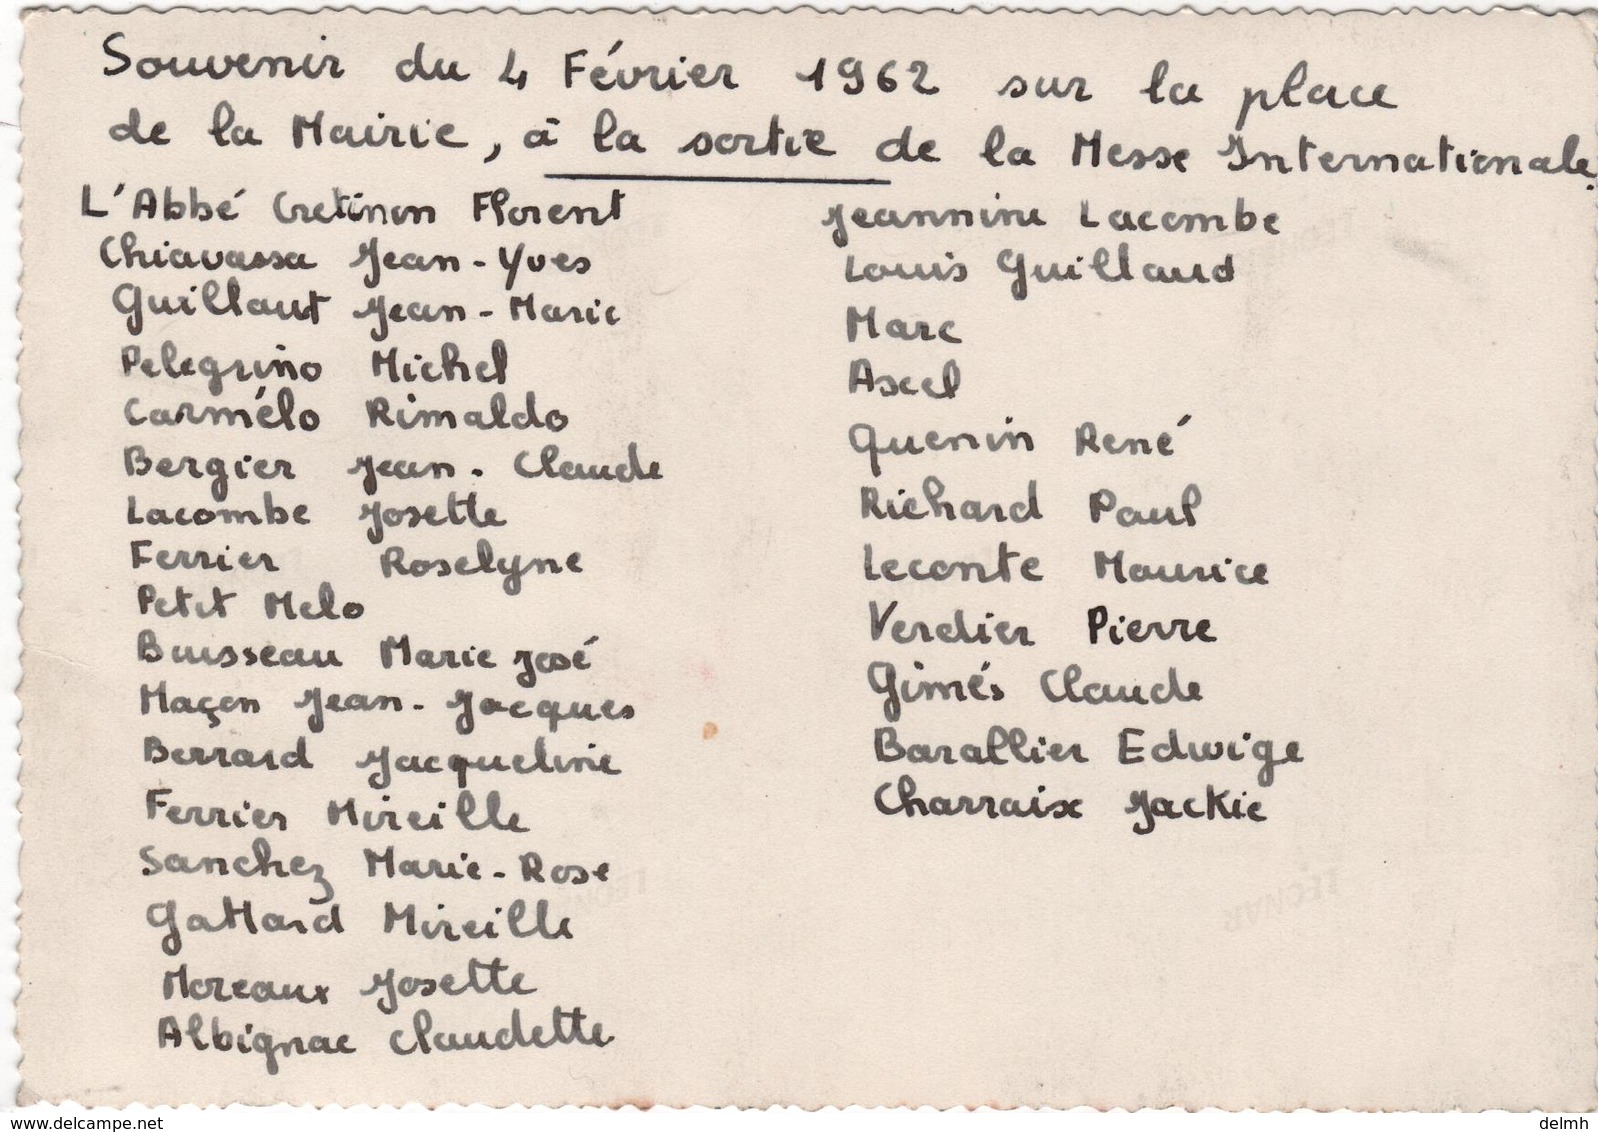 Souvenir du 4 Février 1962 sur la place
de la Mairie, à la sortie de la Messe Internationale.
L'Abbé Cretinon Florent
Chiavassa Jean-Yves
Guillaut Jean-Marie
Pelegrino Michel
Carmélo Rimaldo
Bergier Jean-Claude
Lacombe Josette
Ferrier Roselyne
Petit Melo
Buisseau Marie José
Maçon Jean-Jacques
Berrard Jacqueline
Ferrier Mireille
Sanchez Marie-Rose
Gattard Mireille
Moreaux Josette
Albignac Claudette
Jeannine Lacombe
Louis Guillaud
Marc
Axel
Quenin René
Richard Paul
Leconte Maurice
Verdier Pierre
Gimés Claude
Barallier Edwige
Charraix Jackie
www.delcampe.net
delmh